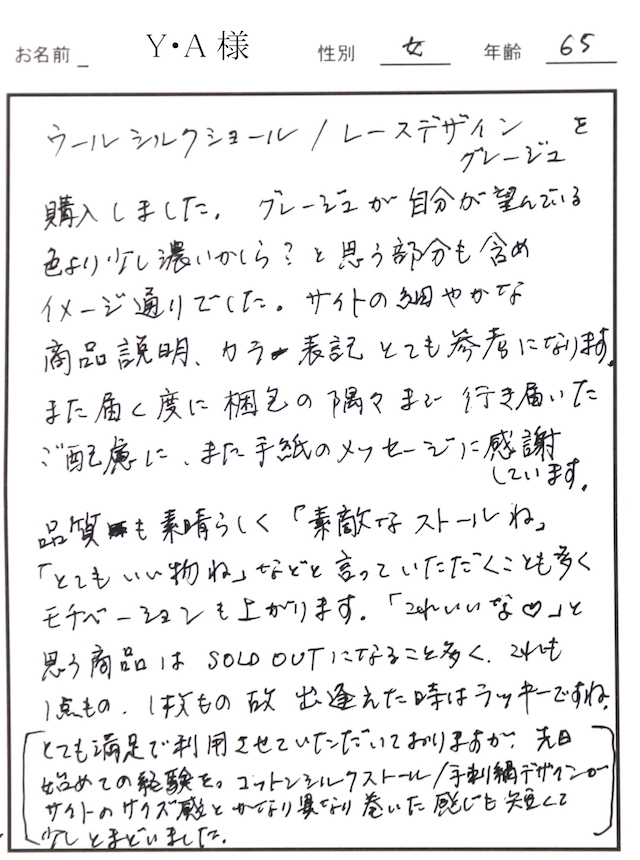 お名前 Y・A様 性別 女 年齢 65
ウールシルクショール/レースデザイン を
グレージュ
購入しました。グレージュが自分が望んでいる
色より少し濃いかしら?と思う部分も含め
イメージ通りでした。サイトの細やかな
商品説明、カラー表記とても参考になります。
また届く度に梱包の隅々まで行き届いた
ご配慮に、また手紙のメッセージに感謝
しています。
品質も素晴らしく「素敵なストールね」
「とてもいい物ね」などと言っていただくことも多く
モチベーションも上がります。「これいいな♡」と
思う商品は SOLD OUTになること多く、これも
1点もの、1枚もの故 出逢えた時はラッキーですね。
とても満足で利用させていただいておりますが、先日
始めての経験を。コットンシルクストール/手刺繍デザインが
サイトのサイズ感とかなり異なり巻いた感じも短くて
少しとまどいました。